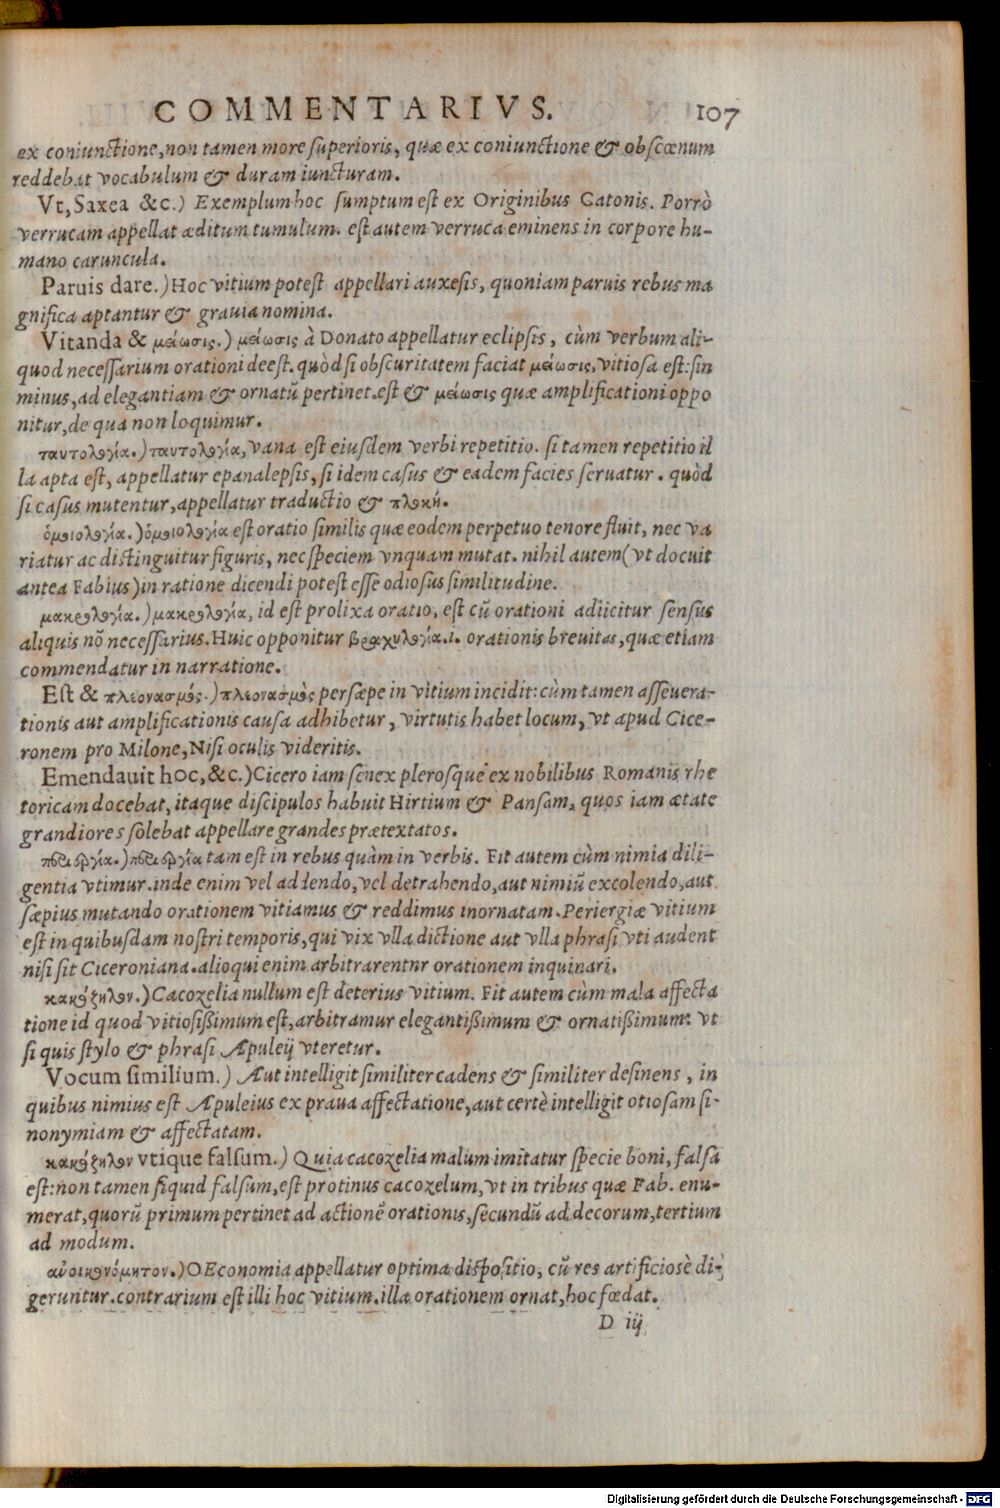 COMMENTARIVS. 107
ex coniunctione, non tamen more superioris, quæ ex coniunctione & obscœnum
reddebat vocabulum & duram iuncturam.
Vt, Saxea &c.) Exemplum hoc sumptum est ex Originibus Catonis. Porrò
verrucam appellat æditum tumulum. est autem verruca eminens in corpore hu-
mano caruncula.
Paruis dare.) Hoc vitium potest appellari auxesis, quoniam paruis rebus ma
gnifica aptantur & grauia nomina.
Vitanda & μείωσις.) μείωσις à Donato appellatur eclipsis, cùm verbum ali-
quod necessarium orationi deest. quòd si obscuritatem faciat μείωσις, vitiosa est: sin
minus, ad elegantiam & ornatū pertinet. est & μείωσις quæ amplificationi oppo
nitur, de qua non loquimur.
ταυτολογία.) ταυτολογία, vana est eiusdem verbi repetitio. si tamen repetitio il
la apta est, appellatur epanalepsis, si idem casus & eadem facies seruatur. quòd
si casus mutentur, appellatur traductio & πλοκή.
ὁμοιολογία.) ὁμοιολογία est oratio similis quæ eodem perpetuo tenore fluit, nec va
riatur ac distinguitur figuris, nec speciem vnquam mutat. nihil autem (vt docuit
antea Fabius) in ratione dicendi potest esse odiosus similitudine.
μακρολογία.) μακρολογία, id est prolixa oratio, est cū orationi adiicitur sensus
aliquis nō necessarius. Huic opponitur βραχυλογία.i. orationis breuitas, quæ etiam
commendatur in narratione.
Est & πλεονασμός.) πλεονασμὸς persæpe in vitium incidit: cùm tamen asseuera-
tionis aut amplificationis causa adhibetur, virtutis habet locum, vt apud Cice-
ronem pro Milone, Nisi oculis videritis.
Emendauit hoc, &c.) Cicero iam senex plerosque ex nobilibus Romanis rhe
toricam docebat, itaque discipulos habuit Hirtium & Pansam, quos iam ætate
grandiores solebat appellare grandes prætextatos.
περιεργία.) περιεργία tam est in rebus quàm in verbis. Fit autem cùm nimia dili-
gentia vtimur. inde enim vel addendo, vel detrahendo, aut nimiū excolendo, aut
sæpius mutando orationem vitiamus & reddimus inornatam. Periergiæ vitium
est in quibusdam nostri temporis, qui vix vlla dictione aut vlla phrasi vti audent
nisi sit Ciceroniana. alioqui enim arbitrarentnr orationem inquinari.
κακόζηλον.) Cacozelia nullum est deterius vitium. Fit autem cùm mala affecta
tione id quod vitiosißimum est, arbitramur elegantißimum & ornatißimum: vt
si quis stylo & phrasi Apuleij vteretur.
Vocum similium.) Aut intelligit similiter cadens & similiter desinens, in
quibus nimius est Apuleius ex praua affectatione, aut certè intelligit otiosam si-
nonymiam & affectatam.
κακόζηλον vtique falsum.) Quia cacozelia malum imitatur specie boni, falsa
est: non tamen siquid falsum, est protinus cacozelum, vt in tribus quæ Fab. enu-
merat, quorū primum pertinet ad actionē orationis, secundū ad decorum, tertium
ad modum.
ἀνοικονόμητον.) OEconomia appellatur optima dispositio, cū res artificiosè di-
geruntur. contrarium est illi hoc vitium. illa orationem ornat, hoc fœdat.
D iij
Digitalisierung gefördert durch die Deutsche Forschungsgemeinschaft - DFG